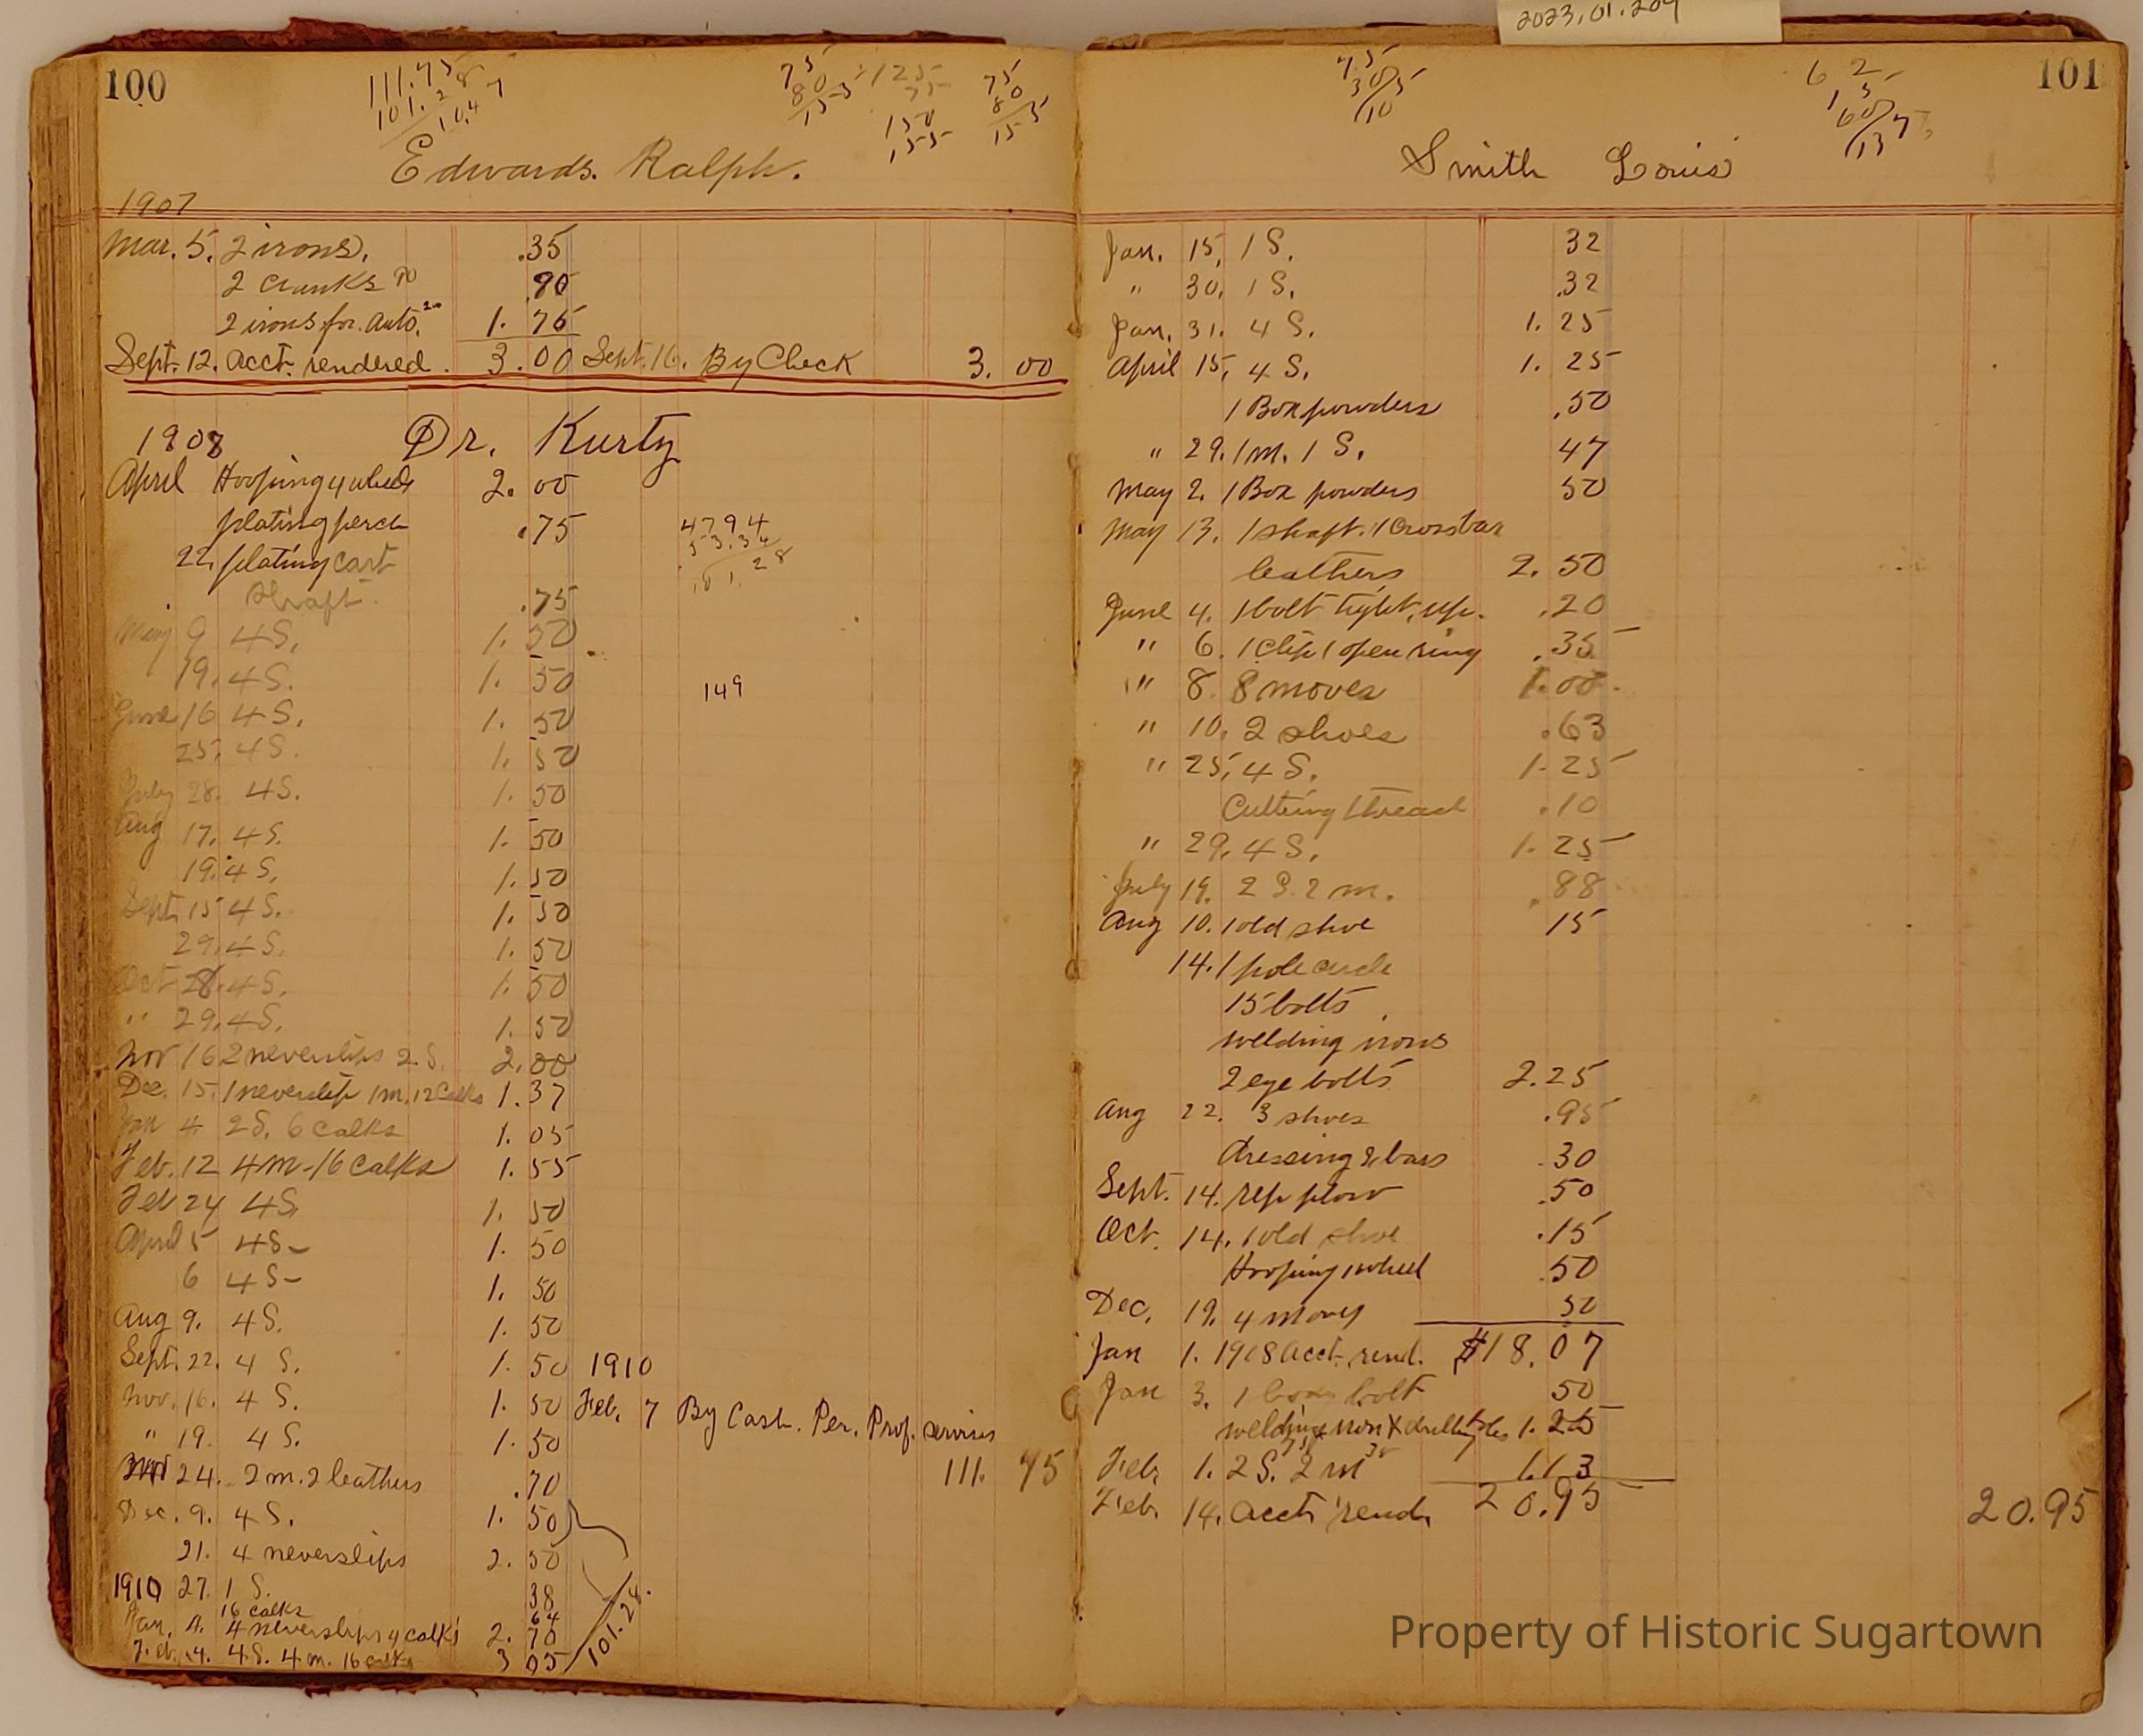 2023.01.209
100
111.75
101.28
10.47
75
80
155
125
75
150
155
75
80
155
Edwards. Ralph.
1907
Mar. 5. 2 irons. .35
2 cranks .90
2 irons for. auto. 1. 75
Sept. 12. acct. rendered. 3.00 Sept. 16. By Check 3. 00
1908 Dr. Kurtz
April Hooping 4 wheels 2. 00
plating perch .75
4794
53.34
101.28
22. plating cart
shaft. .75
May 9 4 S. 1. 50
19. 4 S. 1. 50
149
June 16 4 S. 1. 50
25. 4 S. 1. 50
July 28. 4 S. 1. 50
Aug 17. 4 S. 1. 50
19. 4 S. 1. 50
Sept. 15 4 S. 1. 50
29. 4 S. 1. 50
Oct 28. 4 S. 1. 50
" 29. 4 S. 1. 50
Nov 16 2 neverslips 2 S. 2.00
Dec. 15. 1 neverslip 1 m. 12 Calks 1.37
Jan 4 2 S. 6 calks 1. 05
Feb. 12 4 m - 16 Calks 1. 55
Feb 24 4 S. 1. 50
April 5 4 S - 1. 50
6 4 S - 1. 50
Aug 9. 4 S. 1. 50
Sept. 22. 4 S. 1. 50 1910
Nov. 16. 4 S. 1. 50 Feb. 7 By Cash. Per. Prof. services
" 19. 4 S. 1. 50
111. 75
24. 2 m. 2 leathers .70
Dec. 9. 4 S. 1. 50
21. 4 neverslips 2. 50
1910 27. 1 S. 38
16 calks 64
Jan. 4. 4 neverslips 4 calks 2. 70
Feb. 4. 4 S. 4 m. 16 calks 3 05
101.28.
101
75
30
105
62
15
60
137
Smith Louis
Jan. 15, 1 S. 32
" 30, 1 S. .32
Jan. 31. 4 S. 1. 25
April 15, 4 S. 1. 25
1 Box powders .50
" 29. 1 m. 1 S. 47
May 2. 1 Box powders 50
May 13. 1 shaft. 1 crossbar
leathers 2. 50
June 4. 1 bolt tight. up. .20
" 6. 1 clip 1 open ring .35
" 8. 8 moves 1.00.
" 10. 2 shoes .63
" 25, 4 S. 1. 25
Cutting thread .10
" 29. 4 S. 1. 25
July 19. 2 S. 2 m. .88
Aug 10. 1 old shoe 15
14. 1 pole circle
15 bolts
welding irons
2 eye bolts 2.25
Aug 22. 3 shoes .95
dressing 2 bars .30
Sept. 14. rep plow .50
Oct. 14. 1 old shoe .15
Hooping 1 wheel .50
Dec. 19. 4 moves 50
Jan 1. 1908 acct. rend. $18.07
Jan 3. 1 bolt 50
welding iron & drilling holes 1. 25
Feb. 1. 2 S. 2 m 1.13
Feb. 14. acct. rend. 20.95 20.95
Property of Historic Sugartown